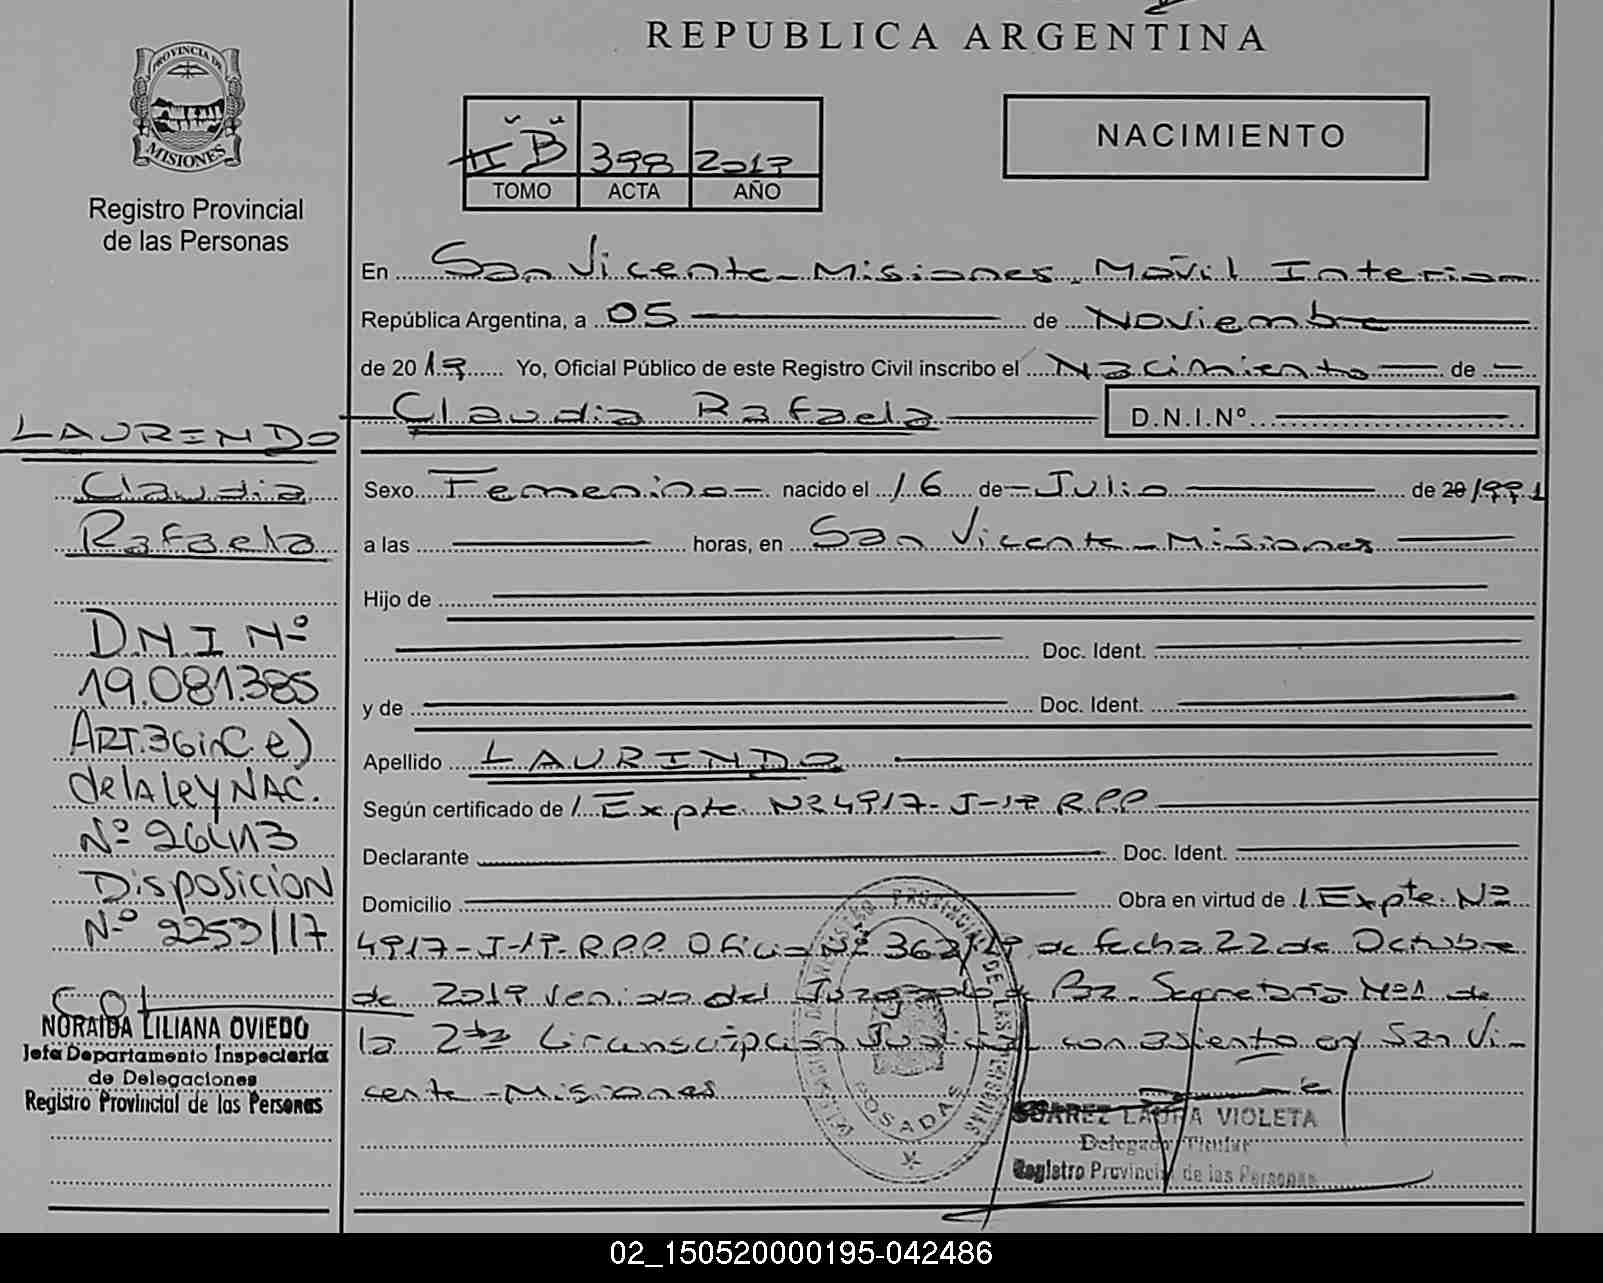 REPUBLICA ARGENTINA
PROVINCIA DE
MISIONES
Registro Provincial
de las Personas
II "B" 398 2019
TOMO ACTA AÑO
NACIMIENTO
En San Vicente - Misiones, Movil Interior
República Argentina, a 05 de Noviembre
de 2019 Yo, Oficial Público de este Registro Civil inscribo el Nacimiento de
Claudia Rafaela D.N.I.Nº
Sexo Femenino nacido el 16 de Julio de 20/1991
a las horas, en San Vicente - Misiones
Hijo de
Doc. Ident.
y de Doc. Ident.
Apellido LAURINDO
Según certificado de Expte Nº 4917-J-19 RPP
Declarante Doc. Ident.
Domicilio Obra en virtud de Expte. Nº
4917-J-19-RPP Oficio Nº 362/19 de fecha 22 de Octubre
de 2019 venido del Juzgado de Paz Secretaría Nº1 de
la 2da Circunscripción Judicial con asiento en San Vi-
cente - Misiones
LAURINDO
Claudia
Rafaela
DNI Nº
19.081.385
ART. 36 inC. e)
de lA ley NAC.
Nº 26413
DisposiciÓN
Nº 2253/17
NORAIDA LILIANA OVIEDO
Jefa Departamento Inspectoría
de Delegaciones
Registro Provincial de las Personas
REGISTRO PROVINCIAL DE LAS PERSONAS
POSADAS
SUAREZ LAURA VIOLETA
Delegado Titular
Registro Provincial de las Personas
02_150520000195-042486